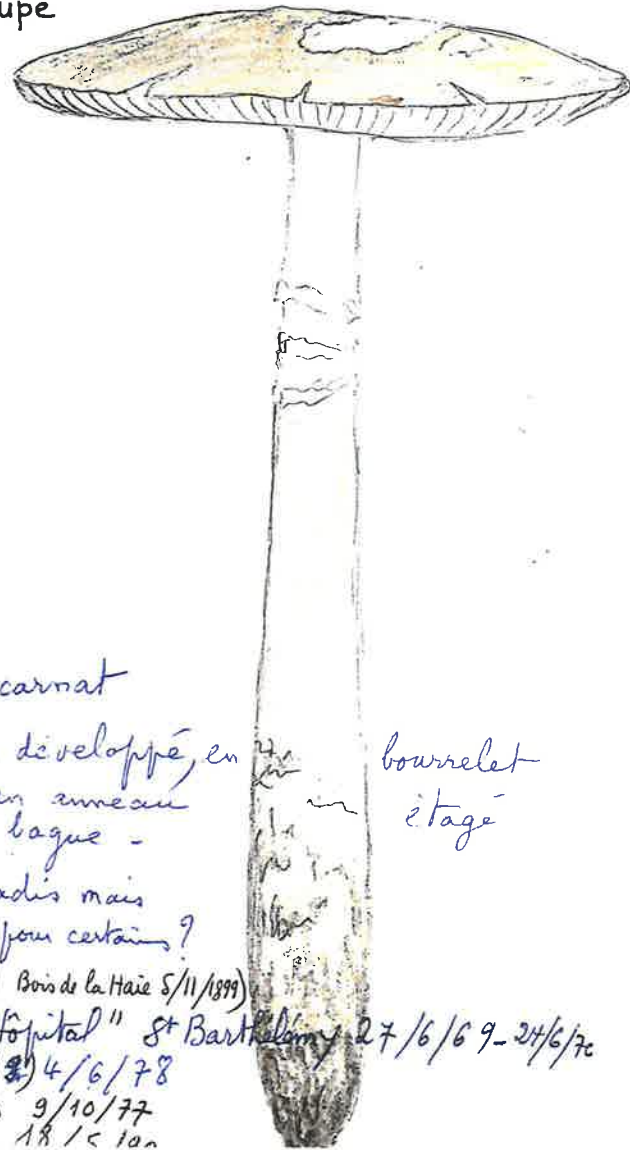 upe
carnat
développé, en bourrelet
en anneau étagé
bague -
jadis mais
pour certains ?
Bois de la Haie 5/11/1899)
ôpital" St Barthélémy 27/6/69 - 24/6/70
4/6/78
9/10/77